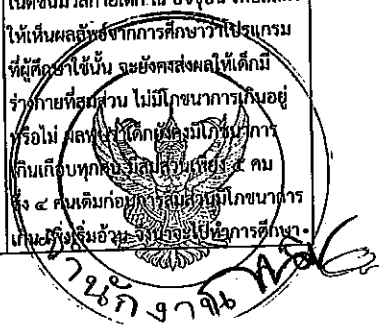 ให้เห็นผลลัพธ์จากการศึกษาว่าโปรแกรม
ที่ผู้ศึกษาใช้นั้น จะยังคงส่งผลให้เด็กมี
ร่างกายที่สมส่วน ไม่มีโภชนาการเกินอยู่
หรือไม่ ผลพบว่าเด็กยังคงมีโภชนาการ
เกินเกือบทุกคน มีสมส่วนเพียง ๕ คน
ซึ่ง ๔ คนเดิมก่อนการสมส่วนมีโภชนาการ
เกิน เริ่มอ้วน จึงน่าจะไปทำการศึกษา
สำนักงาน